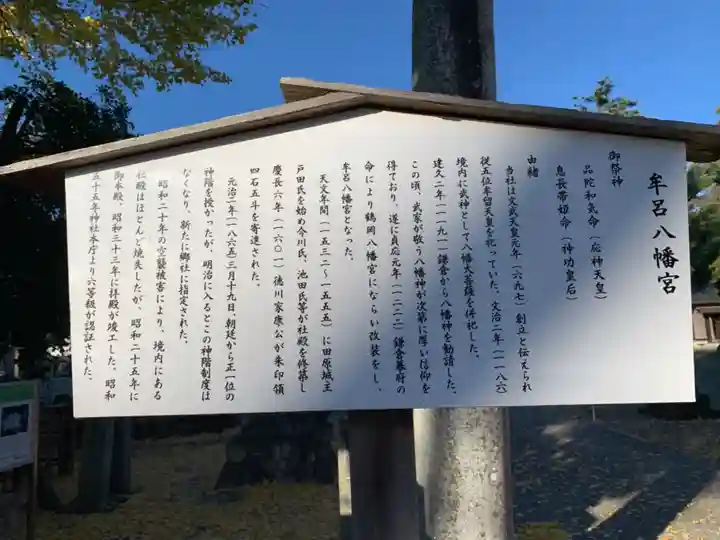 牟呂八幡宮
御祭神
品陀和気命（応神天皇）
息長帯姫命（神功皇后）
由緒
当社は文武天皇元年（六九七）創立と伝えられ
従五位牟留天皇を祀っていた。文治二年（一一八六）
境内に末神として八幡大菩薩を併祀した。
建久二年（一一九一）鎌倉から八幡神を勧請した。
この頃、武家が敬う八幡神が次第に厚い信仰を
得ており、遂に貞応元年（一二二二）鎌倉幕府の
命により鶴岡八幡宮にならい改装をし、
牟呂八幡宮となった。
天文年間（一五三二～一五五五）に田原城主
戸田氏を始め今川氏、池田氏等が社殿を修築し
慶長六年（一六〇一）徳川家康公が朱印領
四石五斗を寄進された。
元治二年（一八六五）三月十九日、朝廷から正一位の
神階を授かったが、明治に入るとこの神階制度は
なくなり、新たに郷社に指定された。
昭和二十年の空襲被害により、境内にある
社殿はほとんど焼失したが、昭和二十五年に
御本殿、昭和三十三年に拝殿が竣工した。昭和
五十五年神社本庁より六等級が認証された。